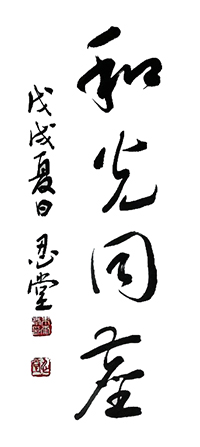 和光同塵
戊戌夏日 忍堂